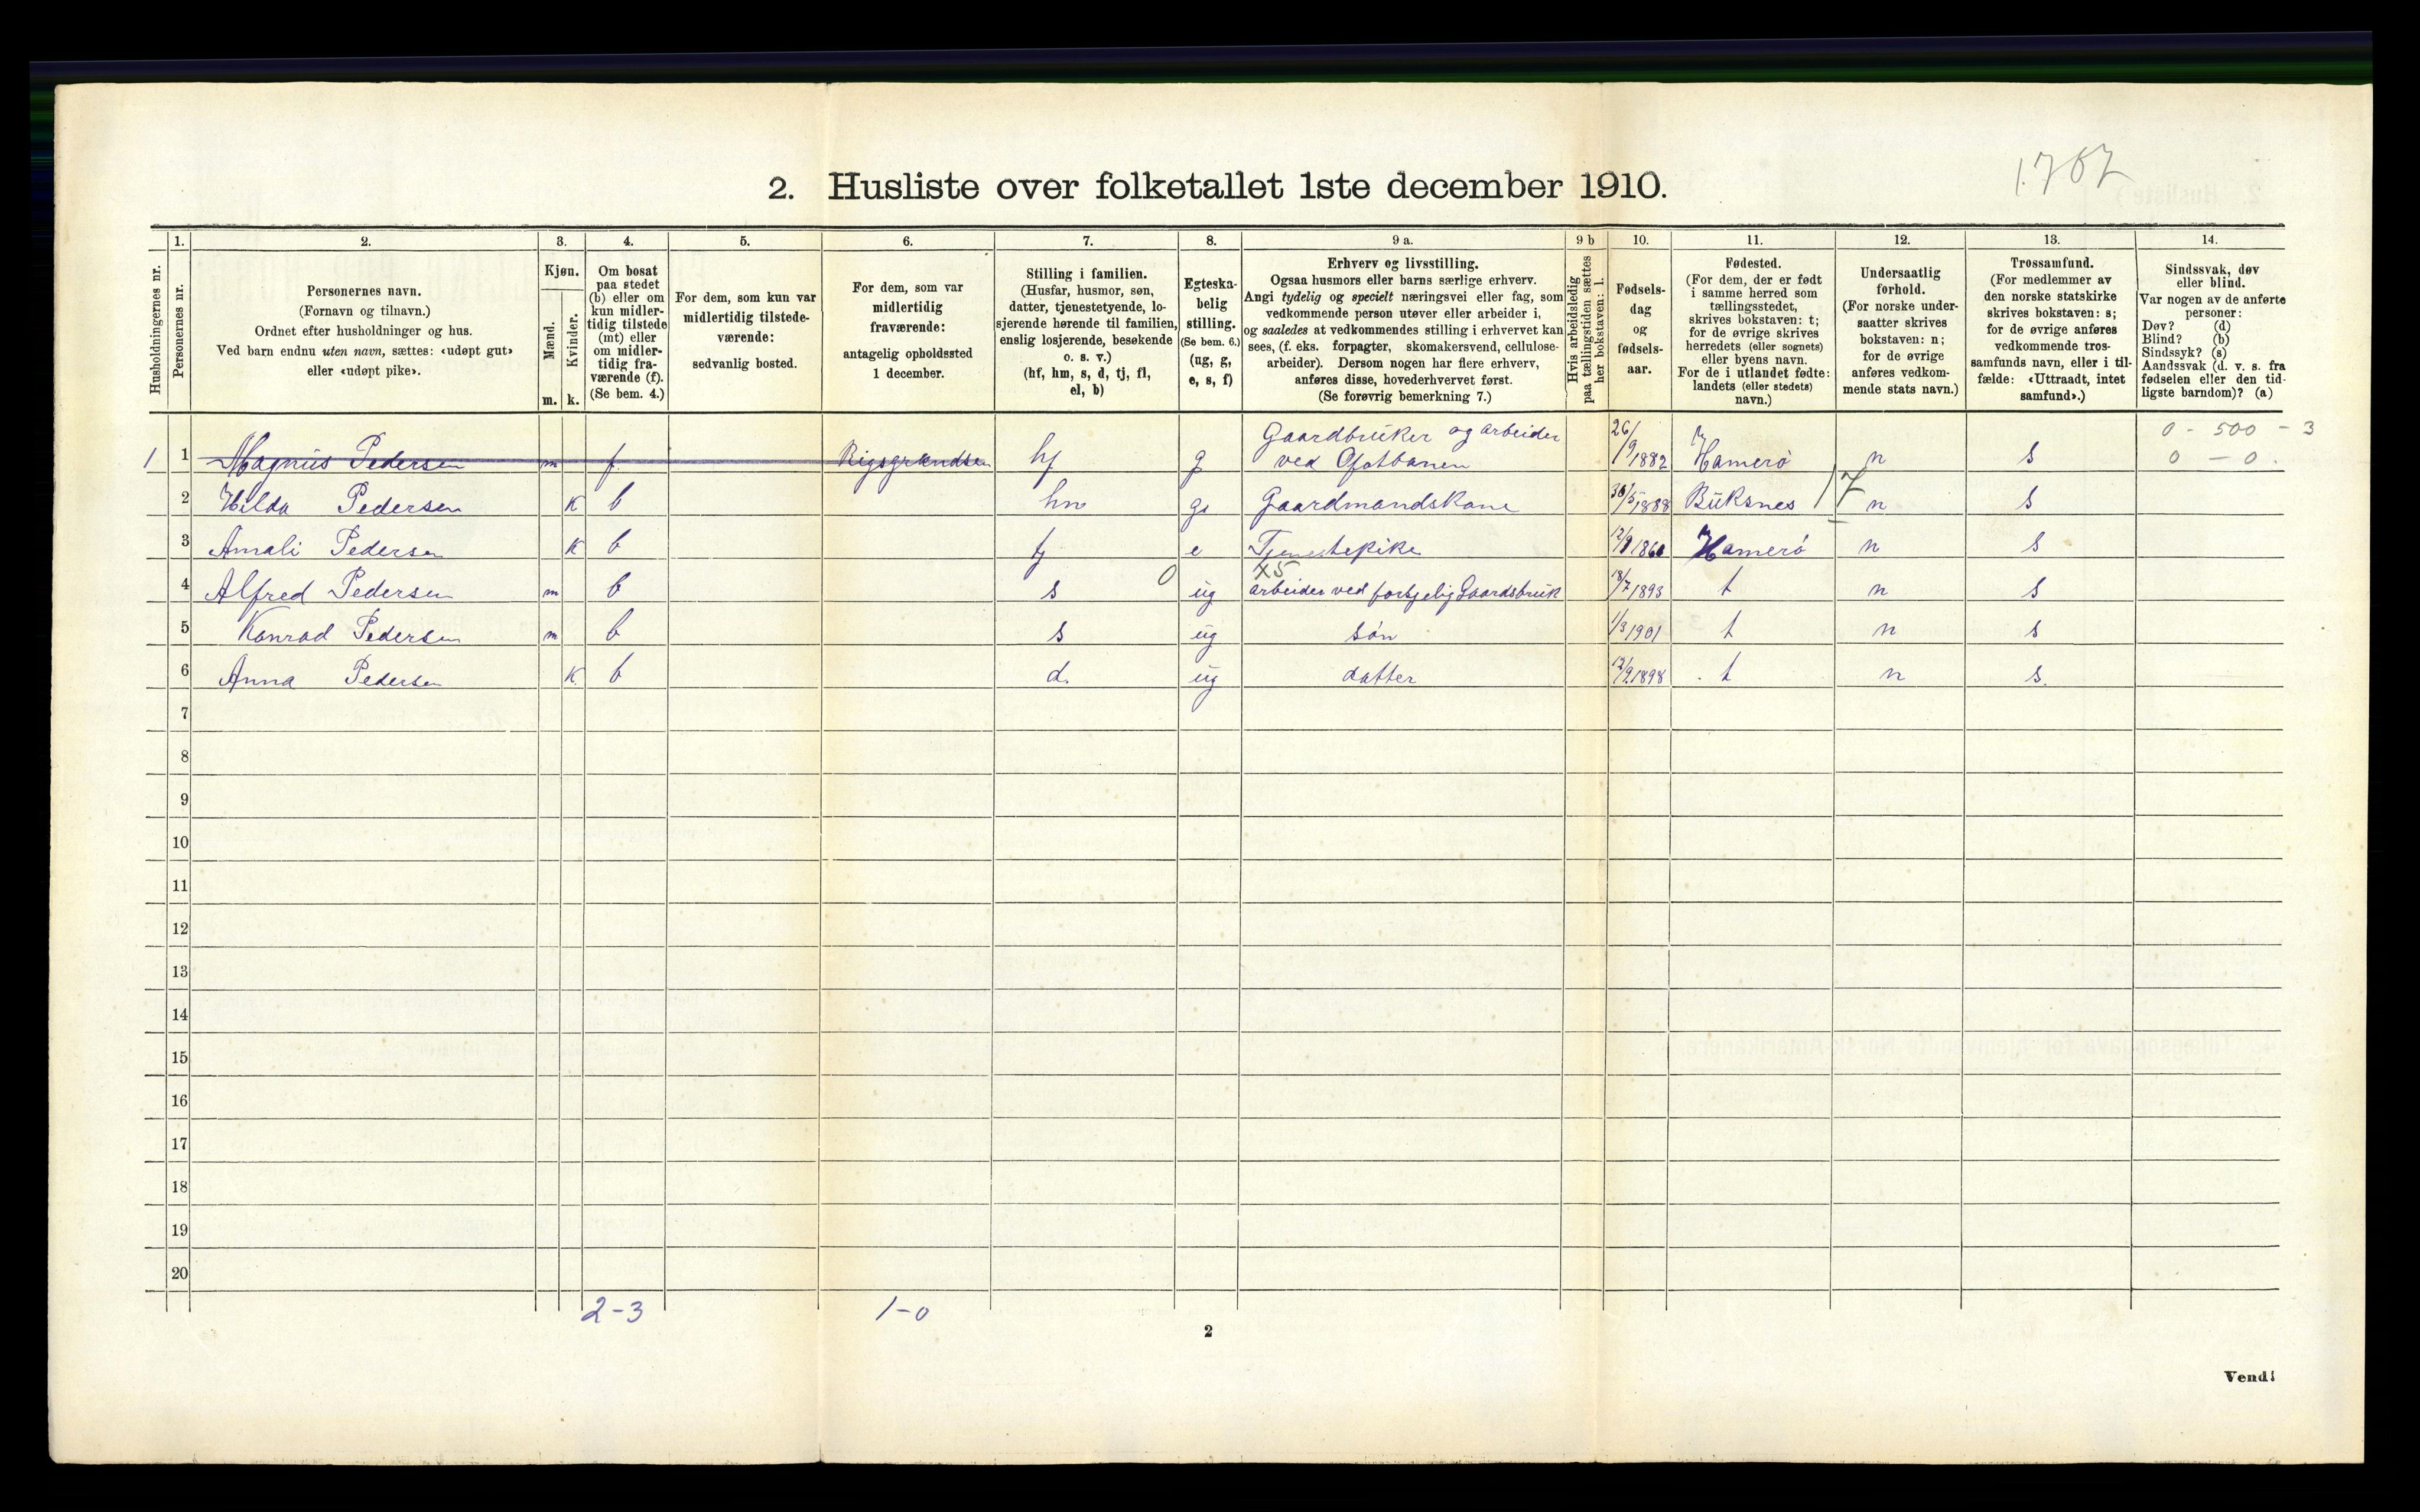 1767
2. Husliste over folketallet 1ste december 1910.
1. 2. 3. 4. 5. 6. 7. 8. 9 a. 9 b 10. 11. 12. 13. 14.
Husholdningernes nr.
Personernes nr.
Personernes navn.
(Fornavn og tilnavn.)
Ordnet efter husholdninger og hus.
Ved barn endnu uten navn, sættes: «udøpt gut»
eller «udøpt pike».
Kjøn.
Mænd.
Kvinder.
m. k.
Om bosat
paa stedet
(b) eller om
kun midler-
tidig tilstede
(mt) eller
om midler-
tidig fra-
værende (f).
(Se bem. 4.)
For dem, som kun var
midlertidig tilstede-
værende:
sedvanlig bosted.
For dem, som var
midlertidig
fraværende:
antagelig opholdssted
1 december.
Stilling i familien.
(Husfar, husmor, søn,
datter, tjenestetyende, lo-
sjerende hørende til familien,
enslig losjerende, besøkende
o. s. v.)
(hf, hm, s, d, tj, fl,
el, b)
Egteska-
belig
stilling.
(Se bem. 6.)
(ug, g,
e, s, f)
Erhverv og livsstilling.
Ogsaa husmors eller barns særlige erhverv.
Angi tydelig og specielt næringsvei eller fag, som
vedkommende person utøver eller arbeider i,
og saaledes at vedkommendes stilling i erhvervet kan
sees, (f. eks. forpagter, skomakersvend, cellulose-
arbeider). Dersom nogen har flere erhverv,
anføres disse, hovederhvervet først.
(Se forøvrig bemerkning 7.)
Hvis arbeidsledig
paa tællingstiden sættes
her bokstaven: l.
Fødsels-
dag
og
fødsels-
aar.
Fødested.
(For dem, der er født
i samme herred som
tællingsstedet,
skrives bokstaven: t;
for de øvrige skrives
herredets (eller sognets)
eller byens navn.
For de i utlandet fødte:
landets (eller stedets)
navn.)
Undersaatlig
forhold.
(For norske under-
saatter skrives
bokstaven: n;
for de øvrige
anføres vedkom-
mende stats navn.)
Trossamfund.
(For medlemmer av
den norske statskirke
skrives bokstaven: s;
for de øvrige anføres
vedkommende tros-
samfunds navn, eller i til-
fælde: «Uttraadt, intet
samfund».)
Sindssvak, døv
eller blind.
Var nogen av de anførte
personer:
Døv? (d)
Blind? (b)
Sindssyk? (s)
Aandssvak (d. v. s. fra
fødselen eller den tid-
ligste barndom)? (a)
Gaardbruker og arbeider 26/ 0 - 500 - 3
1 1 Magnus Pedersen m f Rigsgrændsen hf g ved Ofotbanen 9 1882 Hamerø n s 0 - 0.
2 Hilda Pedersen k b hm g Gaardmandskone 30/5 1888 Buksnes 17 n s
3 Amali Pedersen k b tj e Tjenestepike Hamerø n s
X5
4 Alfred Pedersen m b s 0 ug arbeider ved Gaardsbruk 18/7 1893 t n s
5 Konrad Pedersen m b s ug søn 1/3 1901 t n s
6 Anna Pedersen k b d. ug datter 12/9 1898 t n s.
7
8
9
10
11
12
13
14
15
16
17
18
19
20
2-3 1-0
2
Vend!